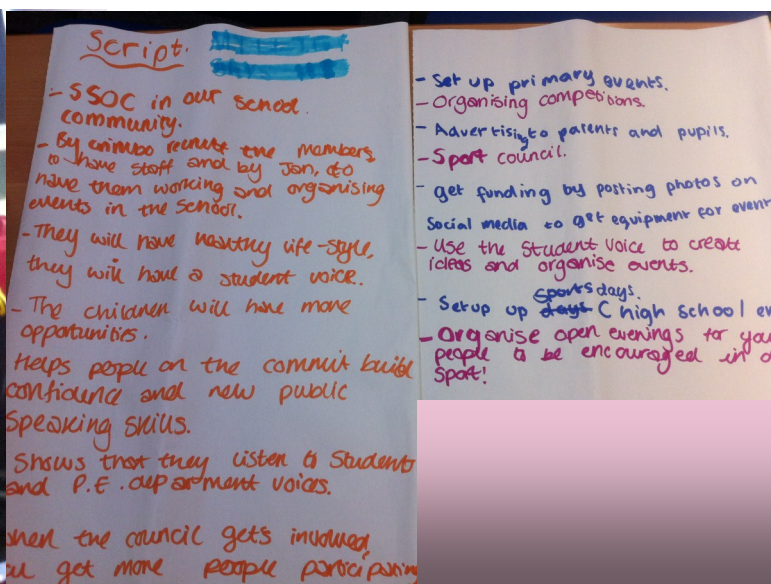 Script.
- SSOC in our school
community.
- By crimbo recruit the members,
to have staff and by Jan, to
have them working and organising
events in the school.
- They will have healthy life-style,
they will have a student voice.
- The children will have more
opportunities.
Helps people on the commit build
confidence and new public
speaking skills.
Shows that they listen to Student
and P.E. department voices.
when the council gets involved
get more people participating
- Set up primary events.
- Organising competitions.
- Advertising to parents and pupils.
- Sport council.
- get funding by posting photos on
Social media to get equipment for event
- Use the Student Voice to create
ideas and organise events.
- Setup up sports days. C high school
- Organise open evenings for
people to be encouraged in
Sport!